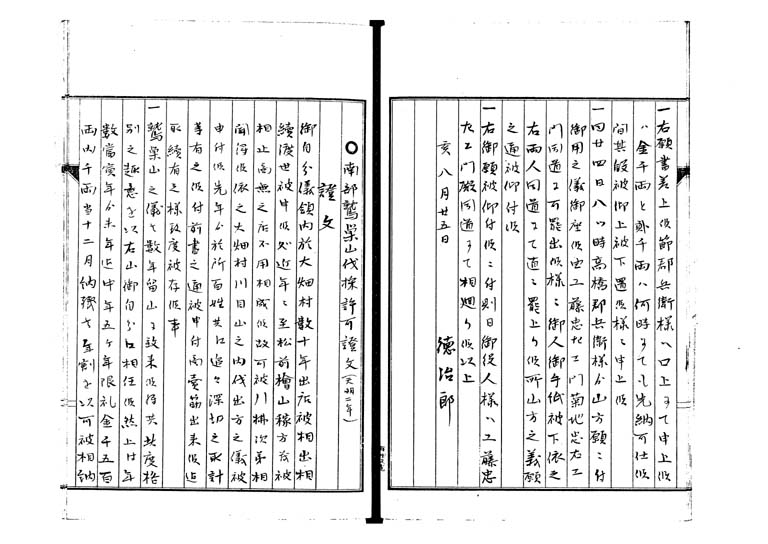 一右願書差上候節郡兵衛様ゟ口上ニ而申上候
ハ金千両と弐千両ハ何時ニても先納可仕候
間其段被仰上被下置候様ニ申上候
一同廿四日八ツ時高橋郡兵衛様ゟ山方願ニ付
御用之儀御座候由工藤忠左エ門菊池忠左エ
門同道ニ可罷出候様ニ御人御手紙被下依之
右両人同道ニて直ニ罷上り候所山方之義願
之通被仰付候
一右御願被仰付候ニ付則日御役人様ヘ工藤忠
左エ門殿同道ニて相廻り候以上
亥八月廿五日
徳治郎
○南部鷲巣山伐採許可證文(天明二年)
證文
御自分儀領内於大畑村数十年出店被相出相
続渡世被申候処近年ニ至松前檜山稼方茂被
相止面無之店不用相成候故可被引拂次第相
聞得候依之大畑村川目山之内伐出方之儀被
申付候先年ゟ於所百姓共江追々深切之取計
等有之候付前書之通被申付尚賣筋出来候迄
取続有之様致度被存候事
一鷲巣山之儀者数年留山ニ致来候得共此度格
別之趣意を以右山御自分江相任候然上は年
数當寅年ゟ来年迄申年五ヶ年限礼金千五百
両内千両当十二月納残者年割を以可被相納